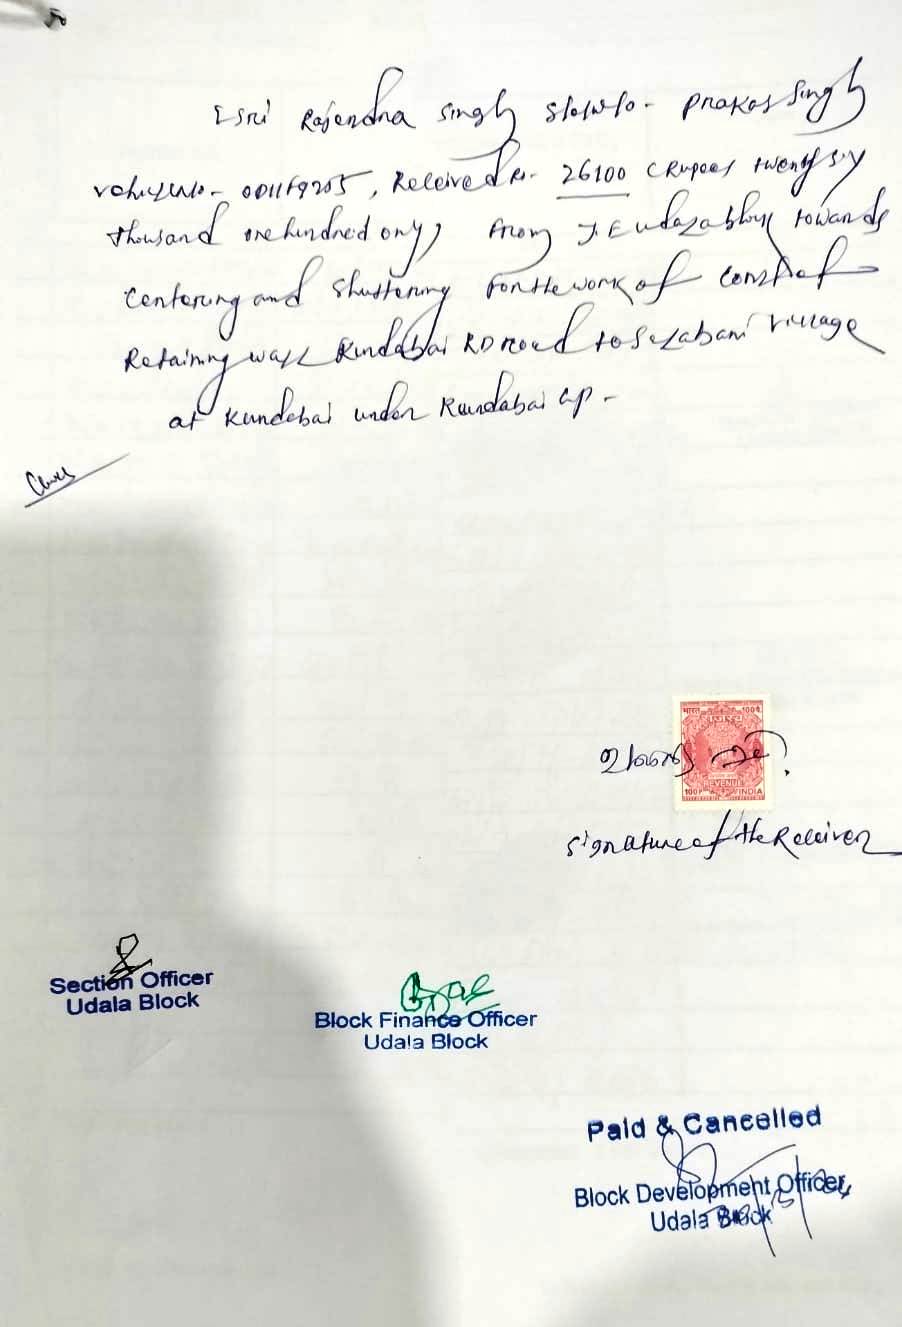 I Sri Rajendra Singh S/o/W/o - Prakas Singh
- 001169205, Received Rs- 26100 (Rupees twenty six
thousand one hundred only) from J.E Udala block towards
Centering and Shuttering for the work of Const of
Retaining wall Kundabai RD road to Selabani village
at Kundabai under Kundabai G.P -
भारत 100 पै.
REVENUE
100 P INDIA
Signature of the Receiver
Section Officer
Udala Block
Block Finance Officer
Udala Block
Paid & Cancelled
Block Development Officer
Udala Block